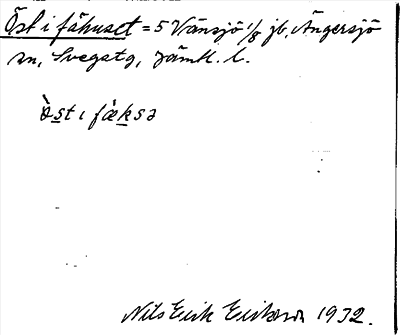 Öst i fähuset = 5 Vänsjö 1/8 jb, Ängersjö
sn, Svegstg, Jämtl. l.
ὸst ι fæksə
Nils Erik Erikson 1932.